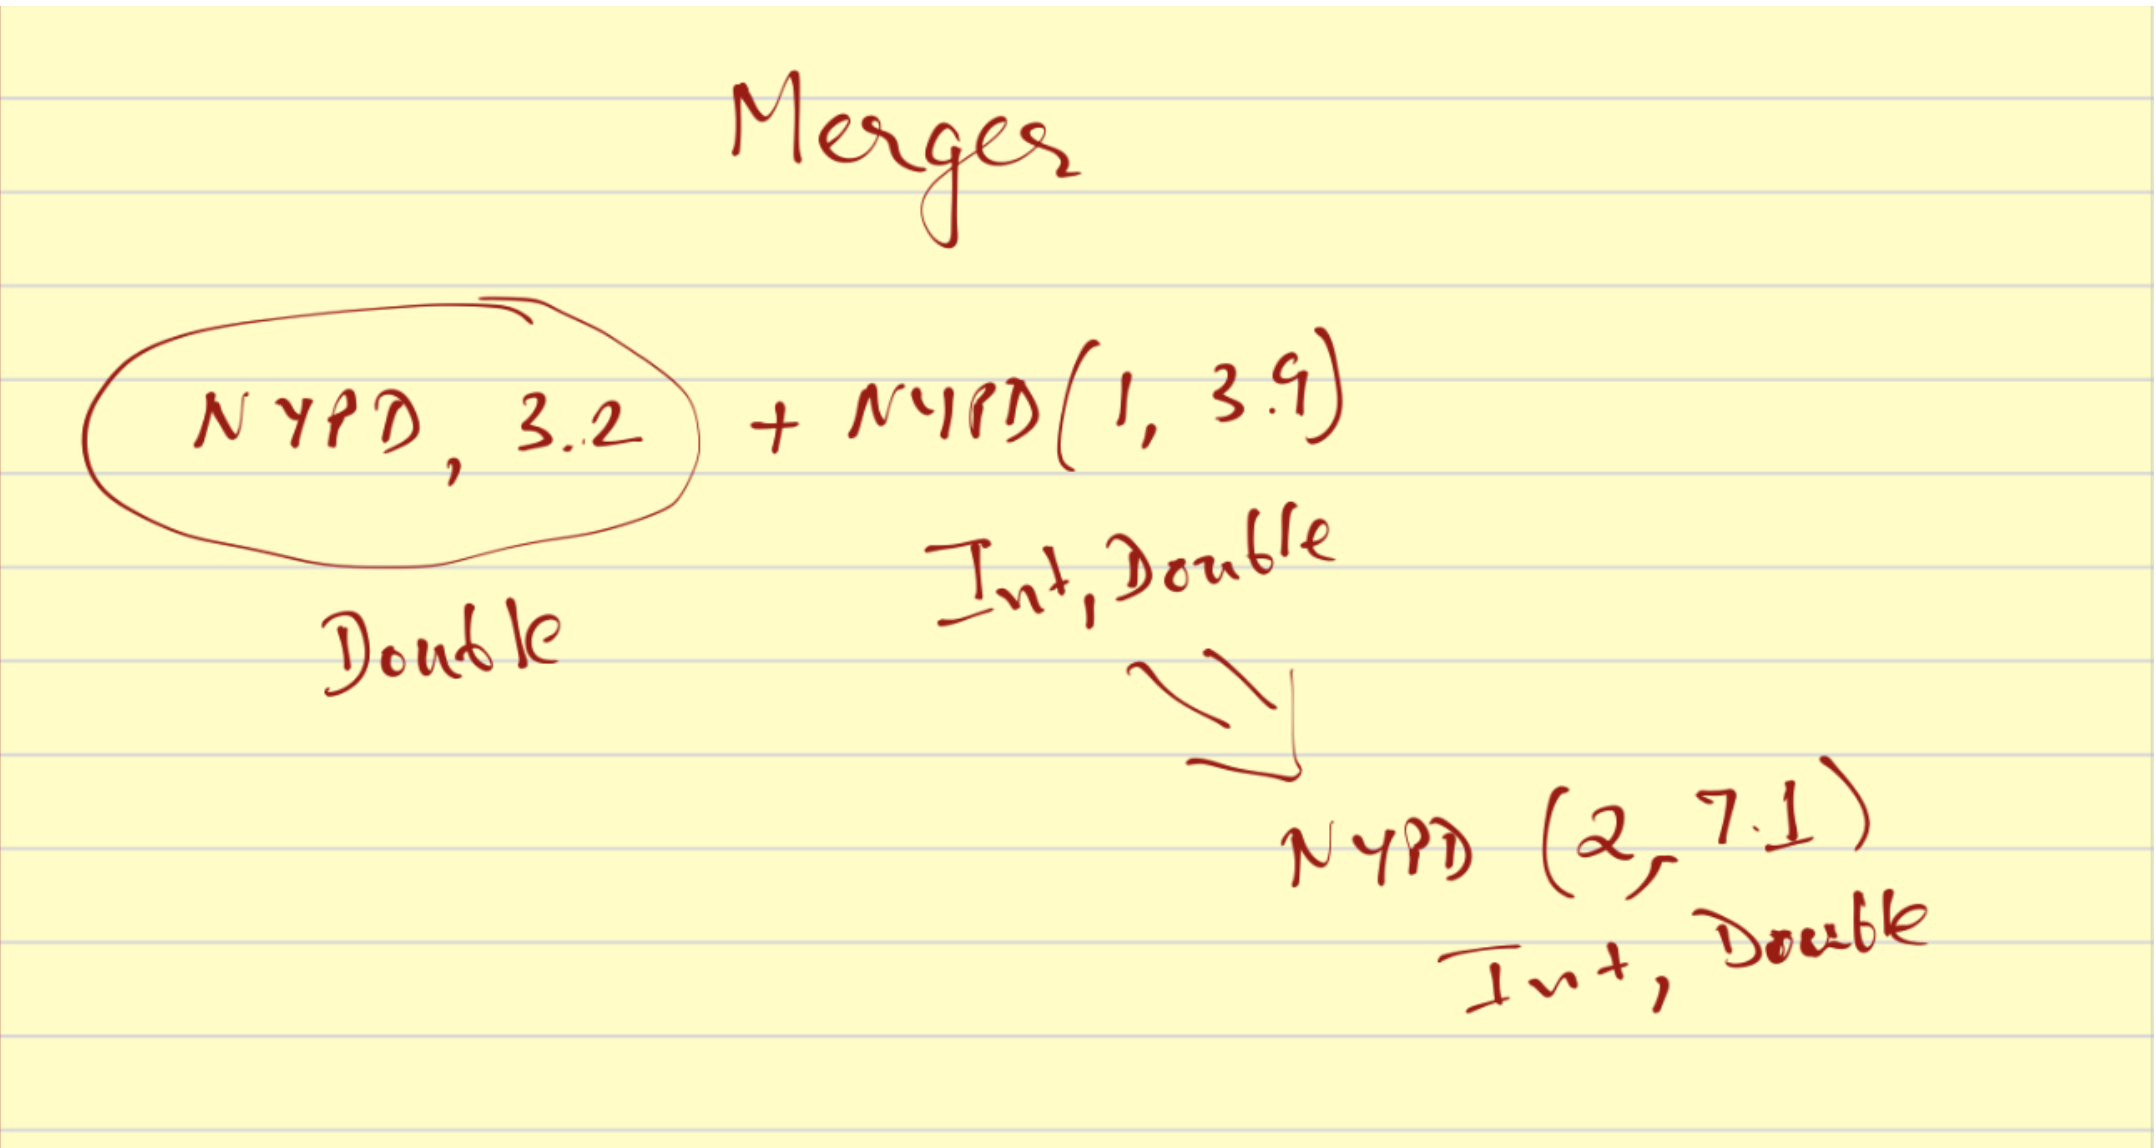 Merger
NYPD, 3.2 + NYPD(1, 3.9)
Double Int, Double
NYPD (2, 7.1)
Int, Double